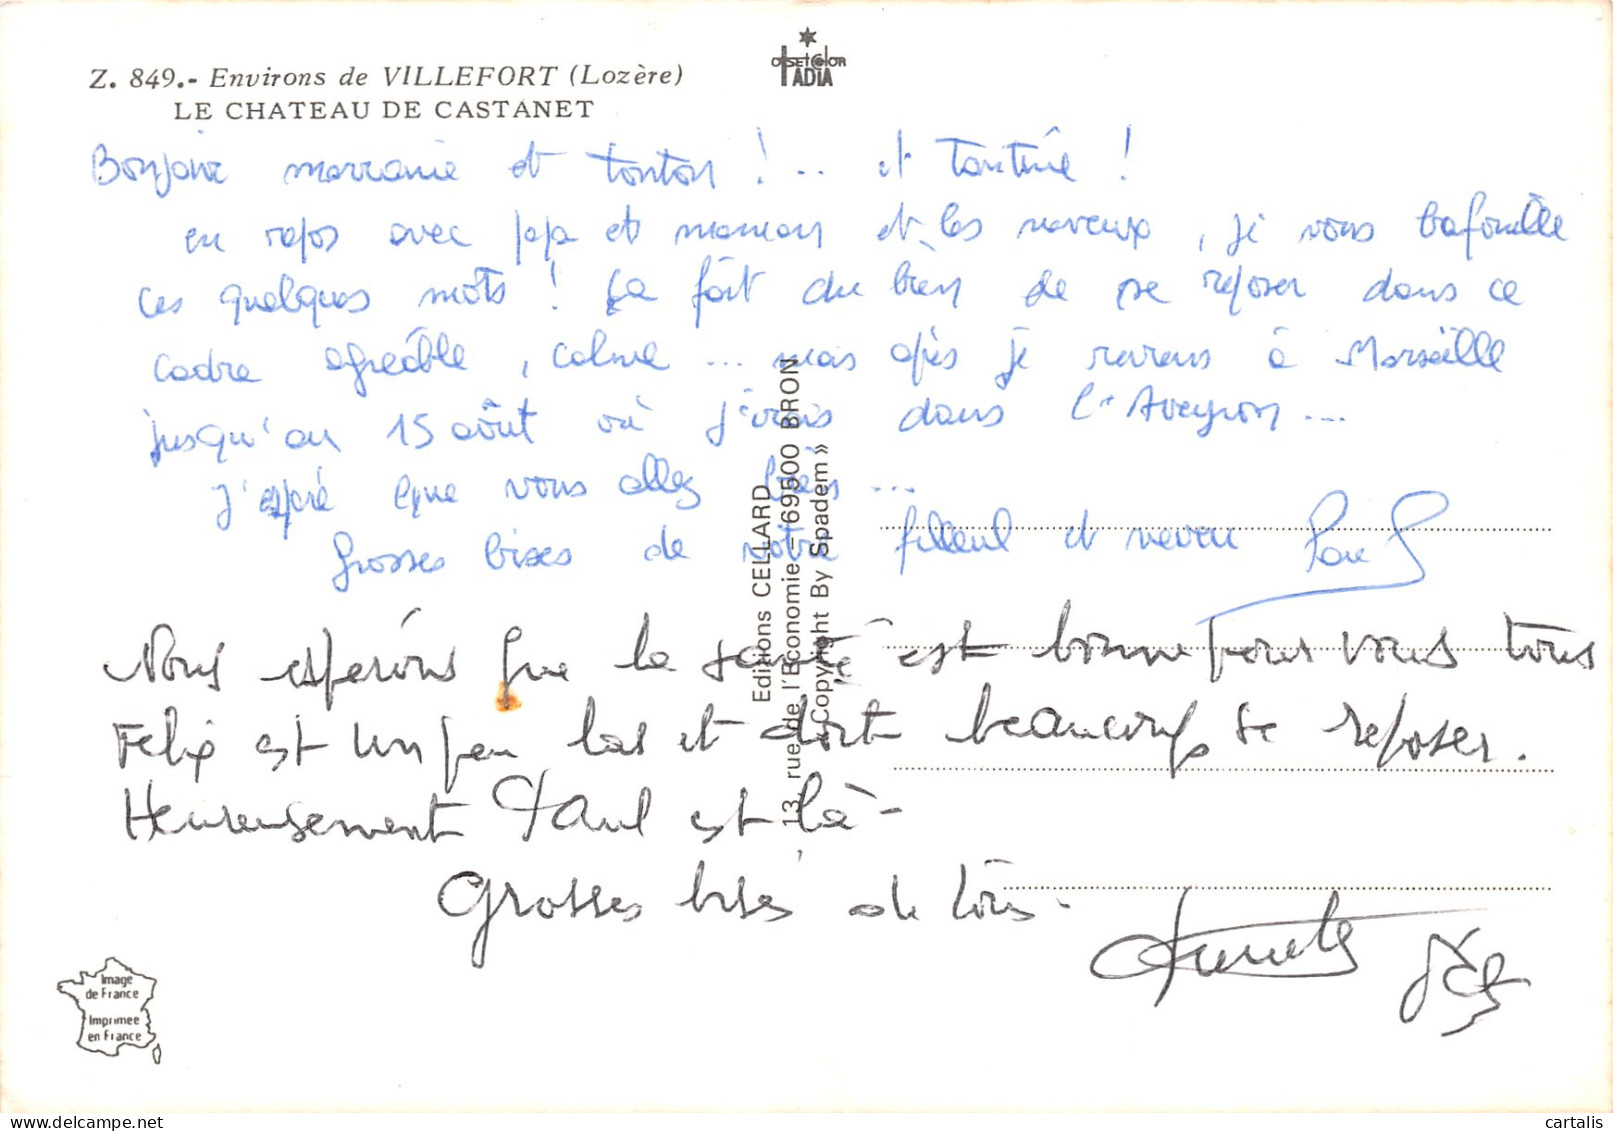 Z. 849.- Environs de VILLEFORT (Lozère)
LE CHATEAU DE CASTANET
OFFSET COLOR
IADIA
Bonjour marraine et tonton ! .. et Tantine !
en repos avec papa et maman et les neveux, je vous bafouille
ces quelques mots ! Ça fait du bien de se reposer dans ce
cadre agréable, calme ... mais après je reviens à Marseille
jusqu'au 15 août où j'irais dans l'Aveyron ...
J'espère que vous allez bien ...
Grosses bises de votre filleul et neveu Paul
Nous espérons que la santé est bonne pour vous tous
Felix est un peu las et doit beaucoup se reposer.
Heureusement Paul est là -
Grosses bises de tous.
Editions CELLARD
13, rue de l'Economie - 69500 BRON
«Copyright By Spadem»
Image
de France
Imprimee
en France
cartalis